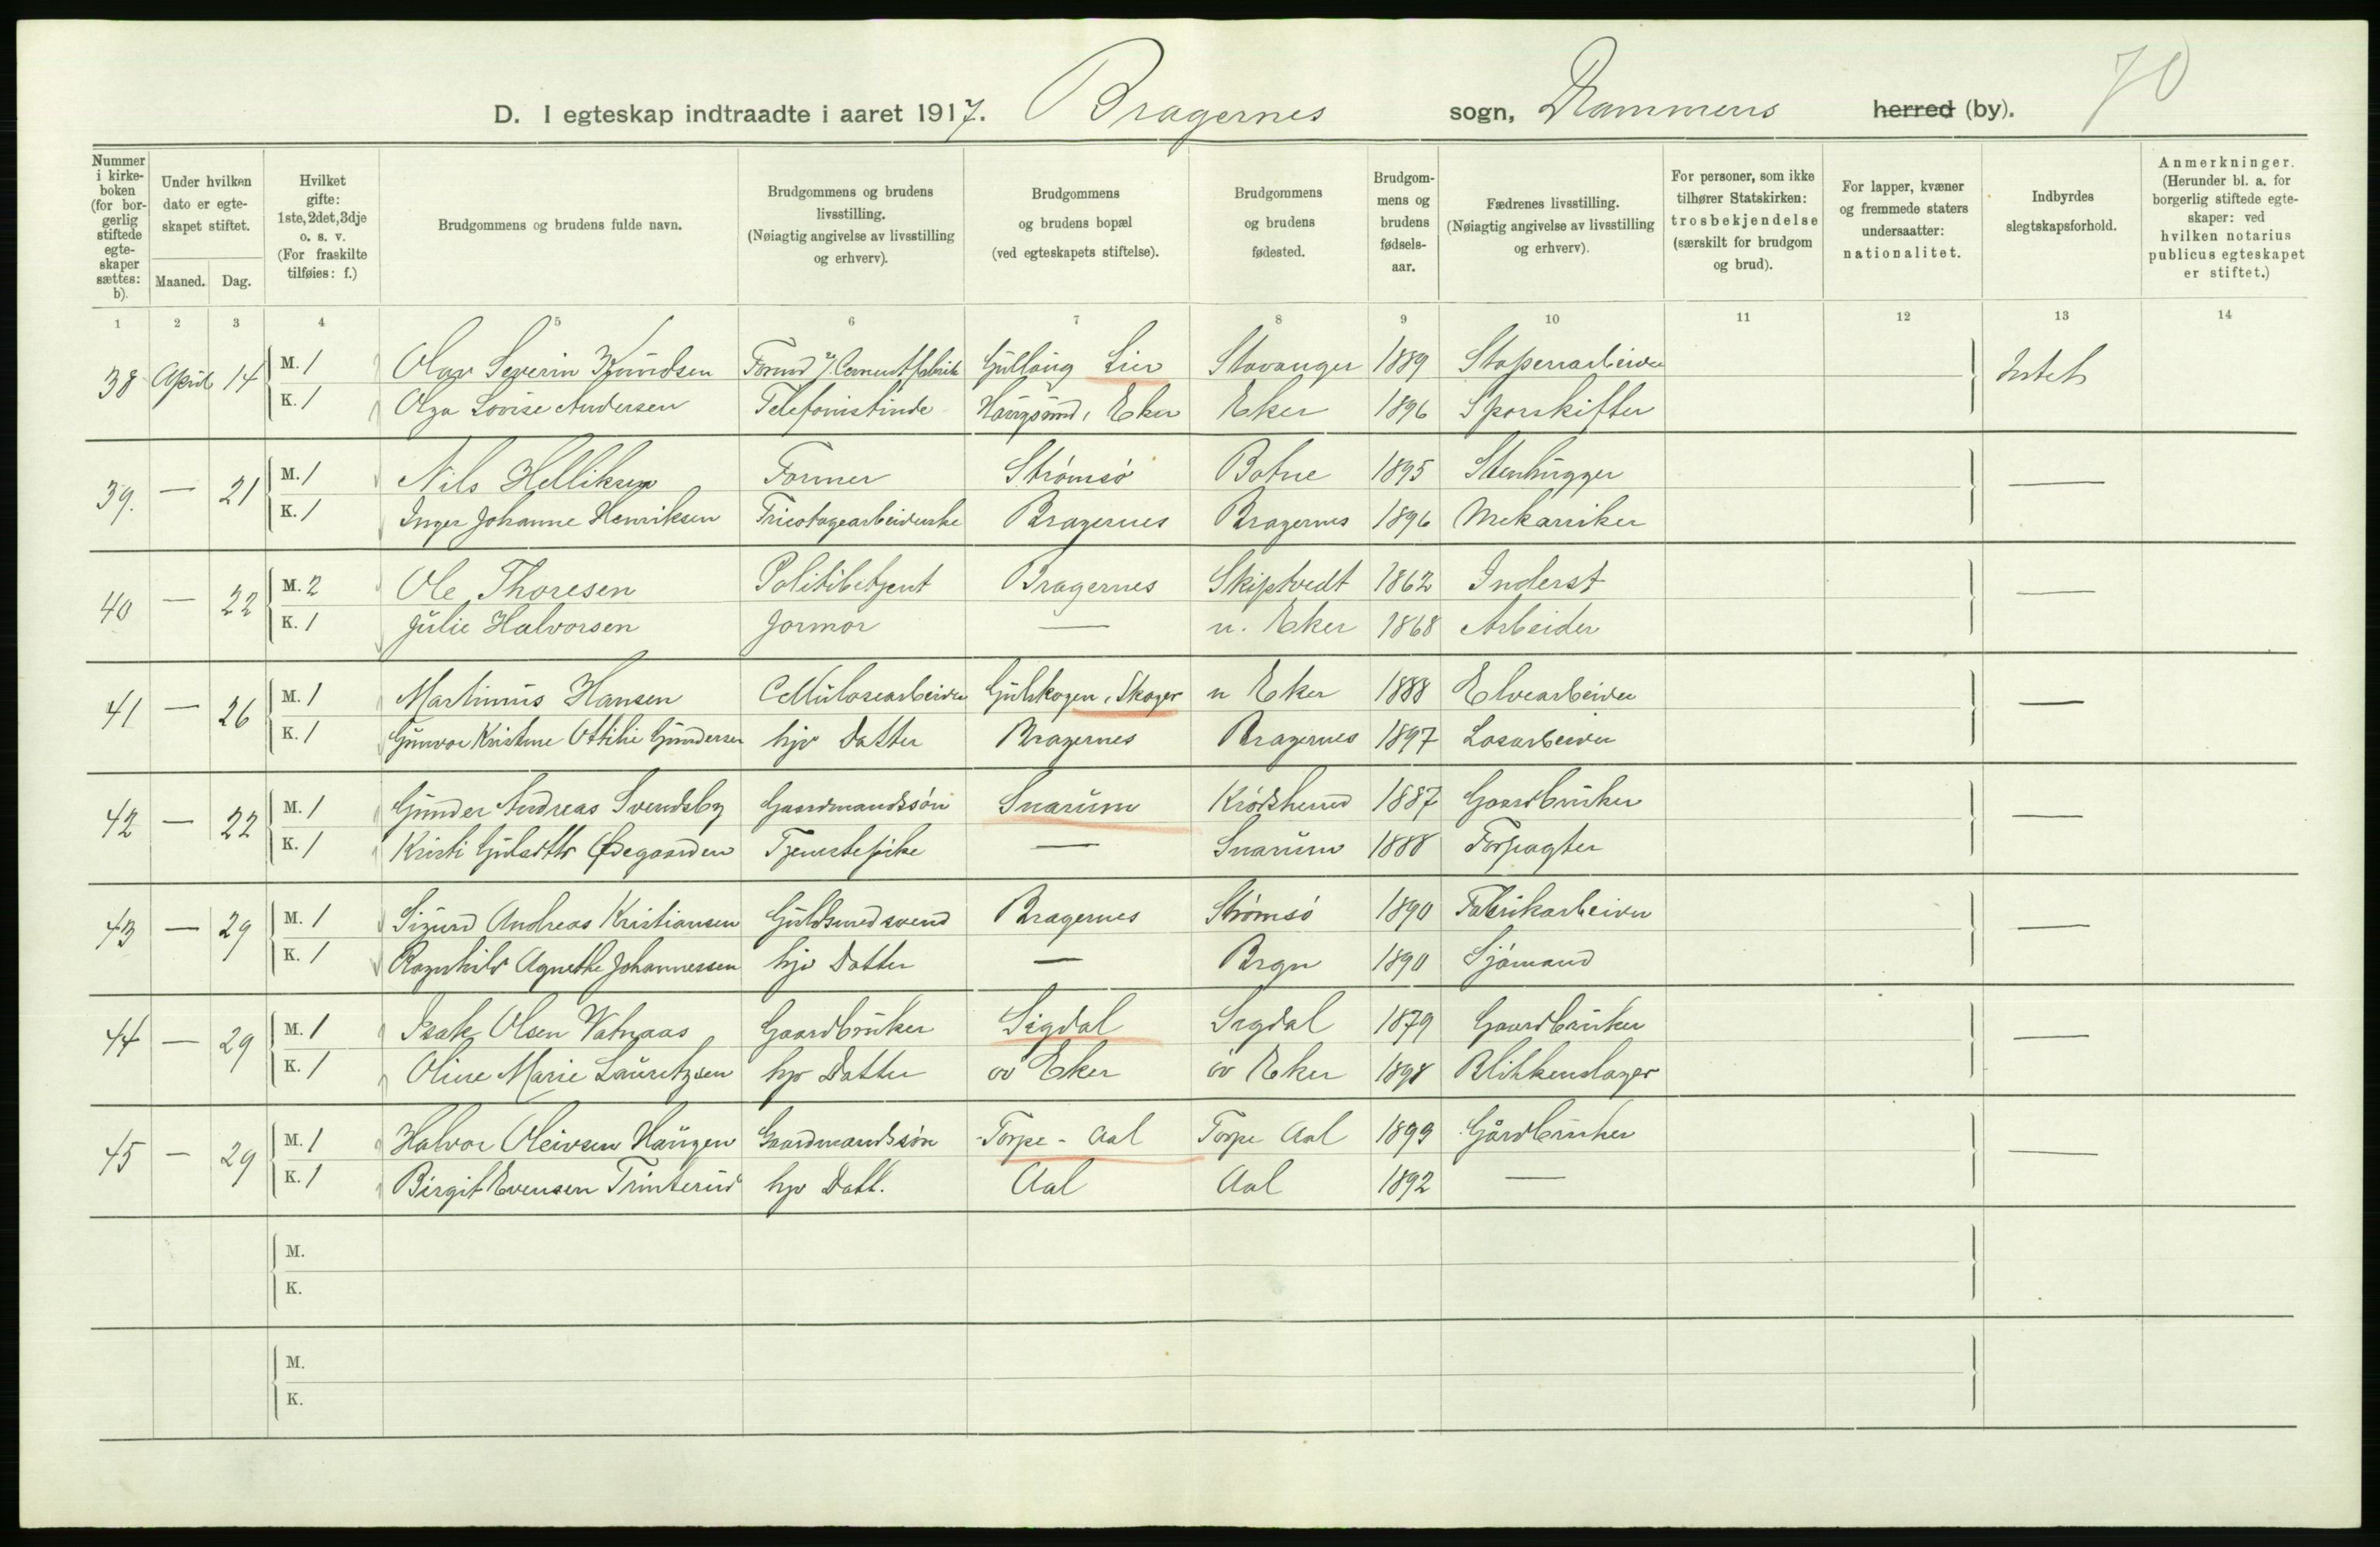 70
D. I egteskap indtraadte i aaret 1917. Bragernes sogn, Drammens herred (by).
Nummer i kirke-boken (for bor-gerlig stiftede egte-skaper sættes: b).
Under hvilken dato er egte-skapet stiftet.
Maaned. Dag.
Hvilket gifte: 1ste, 2det, 3dje o. s. v. (For fraskilte tilføies: f.)
Brudgommens og brudens fulde navn.
Brudgommens og brudens livsstilling. (Nøiagtig angivelse av livsstilling og erhverv).
Brudgommens og brudens bopæl (ved egteskapets stiftelse).
Brudgommens og brudens fødested.
Brudgom-mens og brudens fødsels-aar.
Fædrenes livsstilling. (Nøiagtig angivelse av livsstilling og erhverv).
For personer, som ikke tilhører Statskirken: trosbekjendelse (særskilt for brudgom og brud).
For lapper, kvæner og fremmede staters undersaatter: nationalitet.
Indbyrdes slegtskapsforhold.
Anmerkninger. (Herunder bl. a. for borgerlig stiftede egte-skaper: ved hvilken notarius publicus egteskapet er stiftet.)
1 2 3 4 5 6 7 8 9 10 11 12 13 14
38 April 14 M. 1 Olav Severin Knudsen Formd v. Cementfabrik Gullaug Lier Stavanger 1889 Intet
K. 1 Olga Lovise Andersen Telefonistinde Haugsund, Eker Eker 1896 Sporskifter
39. — 21 M. 1 Nils Helliksen Former Strømsö Botne 1895 Stenhugger —
K. 1 Inger Johanne Henriksen Tricotagearbeiderske Bragernes Bragernes 1896 Mekaniker
40 — 22 M. 2 Ole Thoresen Politibetjent Bragernes Skiptvedt 1862 Inderst —
K. 1 Julie Halvorsen Jormor — n. Eker 1868 Arbeider
41 — 26 M. 1 Martinius Hansen Cellulosearbeider Gulskogen, Skoger n Eker 1888 Elvearbeider —
K. 1 Gunvor Kristine Ottilie Gundersen hjv Datter Bragernes Bragernes 1897 Losarbeider
42 — 22 M. 1 Gunder Andreas Svendsby Gaardmandssön Snarum Krödsherred 1887 Gaardbruker —
K. 1 Kristi Ødegaarden Tjenestepike — Snarum 1888 Forpagter
43 — 29 M. 1 Sigurd Andreas Kristiansen Guldsmedsvend Bragernes Strömsö 1890 Fabrikarbeider —
K. 1 Ragnhild Agnethe Johannessen hjv Datter — Brgn 1890 Sjömand
44 — 29 M. 1 Isak Olsen Vatnaas Gaardbruker Sigdal Sigdal 1879 Gaardbruker —
K. 1 Oline Marie Lauritzsen hjv Datter öv Eker öv Eker 1898 Blikkenslager
45 — 29 M. 1 Halvor Oleivsen Haugen Gaardmandssön Torpe - Aal Torpe Aal 1893 Gårdbruker —
K. 1 Birgit Evensen Trinterud hjv Datt. Aal Aal 1892 —
M.
K.
M.
K.